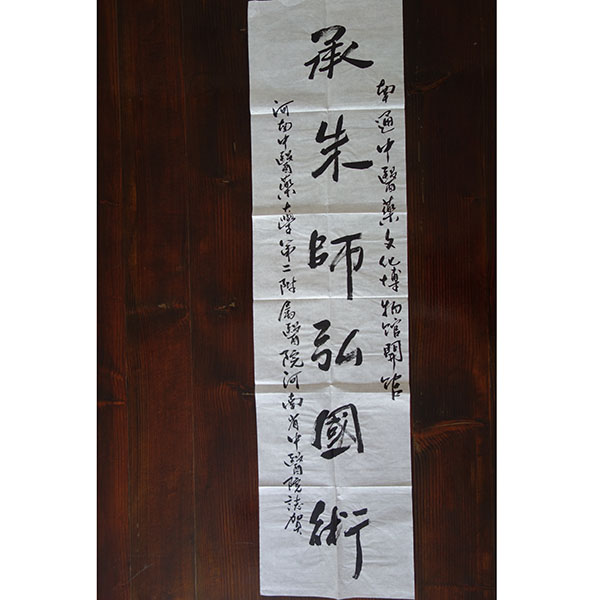 南通中醫藥文化博物馆開馆
承朱師弘國術
河南中醫藥大學第二附属醫院河南省中醫院誌贺